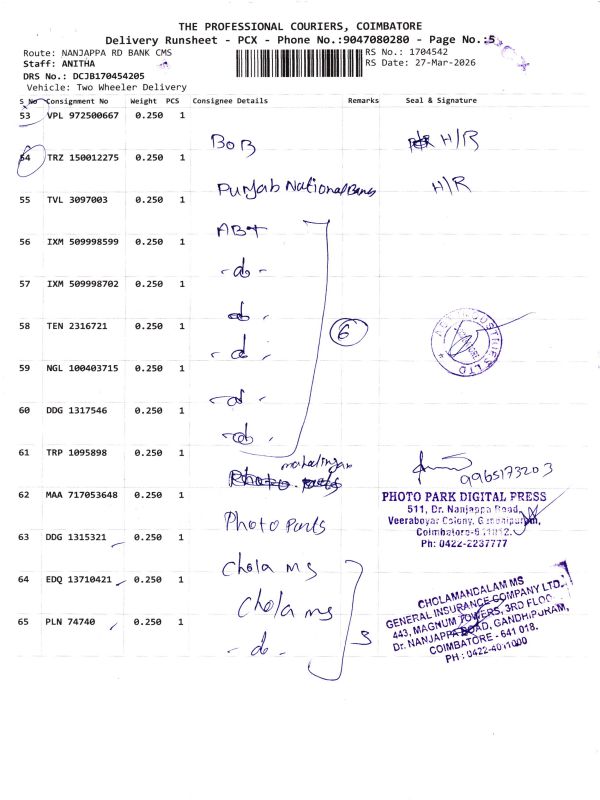 THE PROFESSIONAL COURIERS, COIMBATORE
Delivery Runsheet - PCX - Phone No.:9047080280 - Page No.:5
Route: NANJAPPA RD BANK CMS
RS No.: 1704542
Staff: ANITHA
RS Date: 27-Mar-2026
DRS No.: DCJB170454205
Vehicle: Two Wheeler Delivery
S No Consignment No Weight PCS Consignee Details Remarks Seal & Signature
53 VPL 972500667 0.250 1
BOB H/R
54 TRZ 150012275 0.250 1
Punjab National Bank H/R
55 TVL 3097003 0.250 1
ABT
56 IXM 509998599 0.250 1
-do-
57 IXM 509998702 0.250 1
do.
58 TEN 2316721 0.250 1
6
-do-
59 NGL 100403715 0.250 1
-do-
60 DDG 1317546 0.250 1
-do-
61 TRP 1095898 0.250 1
mahalingam
9965173203
62 MAA 717053648 0.250 1
PHOTO PARK DIGITAL PRESS
511, Dr. Nanjappa Road,
Veeraboyar Colony, Gandhipuram,
Coimbatore-641012.
Ph: 0422-2237777
Photo Parts
63 DDG 1315321 0.250 1
Chola ms
64 EDQ 13710421 0.250 1
Chola ms
65 PLN 74740 0.250 1
-do-
3
CHOLAMANDALAM MS
GENERAL INSURANCE COMPANY LTD.,
443, MAGNUM TOWERS, 3RD FLOOR
Dr. NANJAPPA ROAD, GANDHIPURAM,
COIMBATORE - 641 018.
PH : 0422-4011000